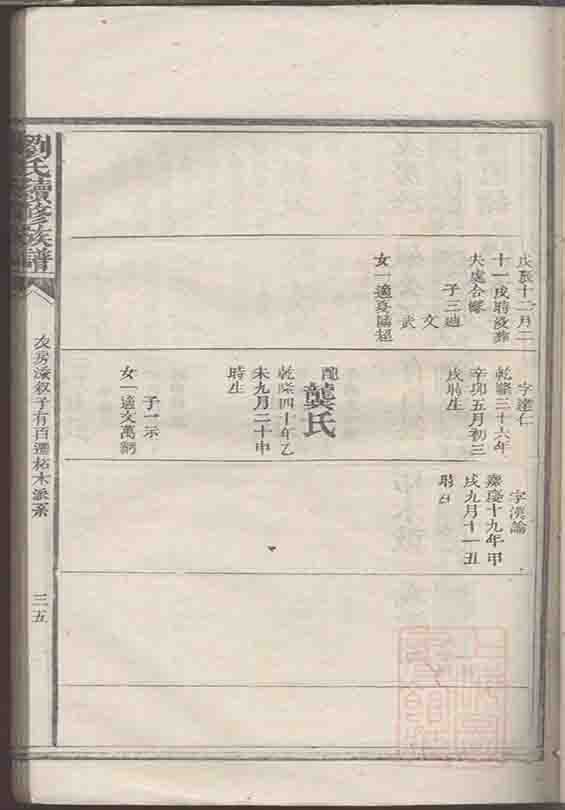 戊辰十二月二
十一戌時歿葬
夫處合塚
子三迪
文
武
女一適
字達仁
乾隆三十六年
辛卯五月初三
戌時生
配
龔氏
乾隆四十年乙
未九月二十申
時生
子一示
女一適文萬嗣
字漢論
嘉慶十九年甲
戌九月十一丑
時
劉氏續修族譜
次房深叙子有百遷柘木派系
三五